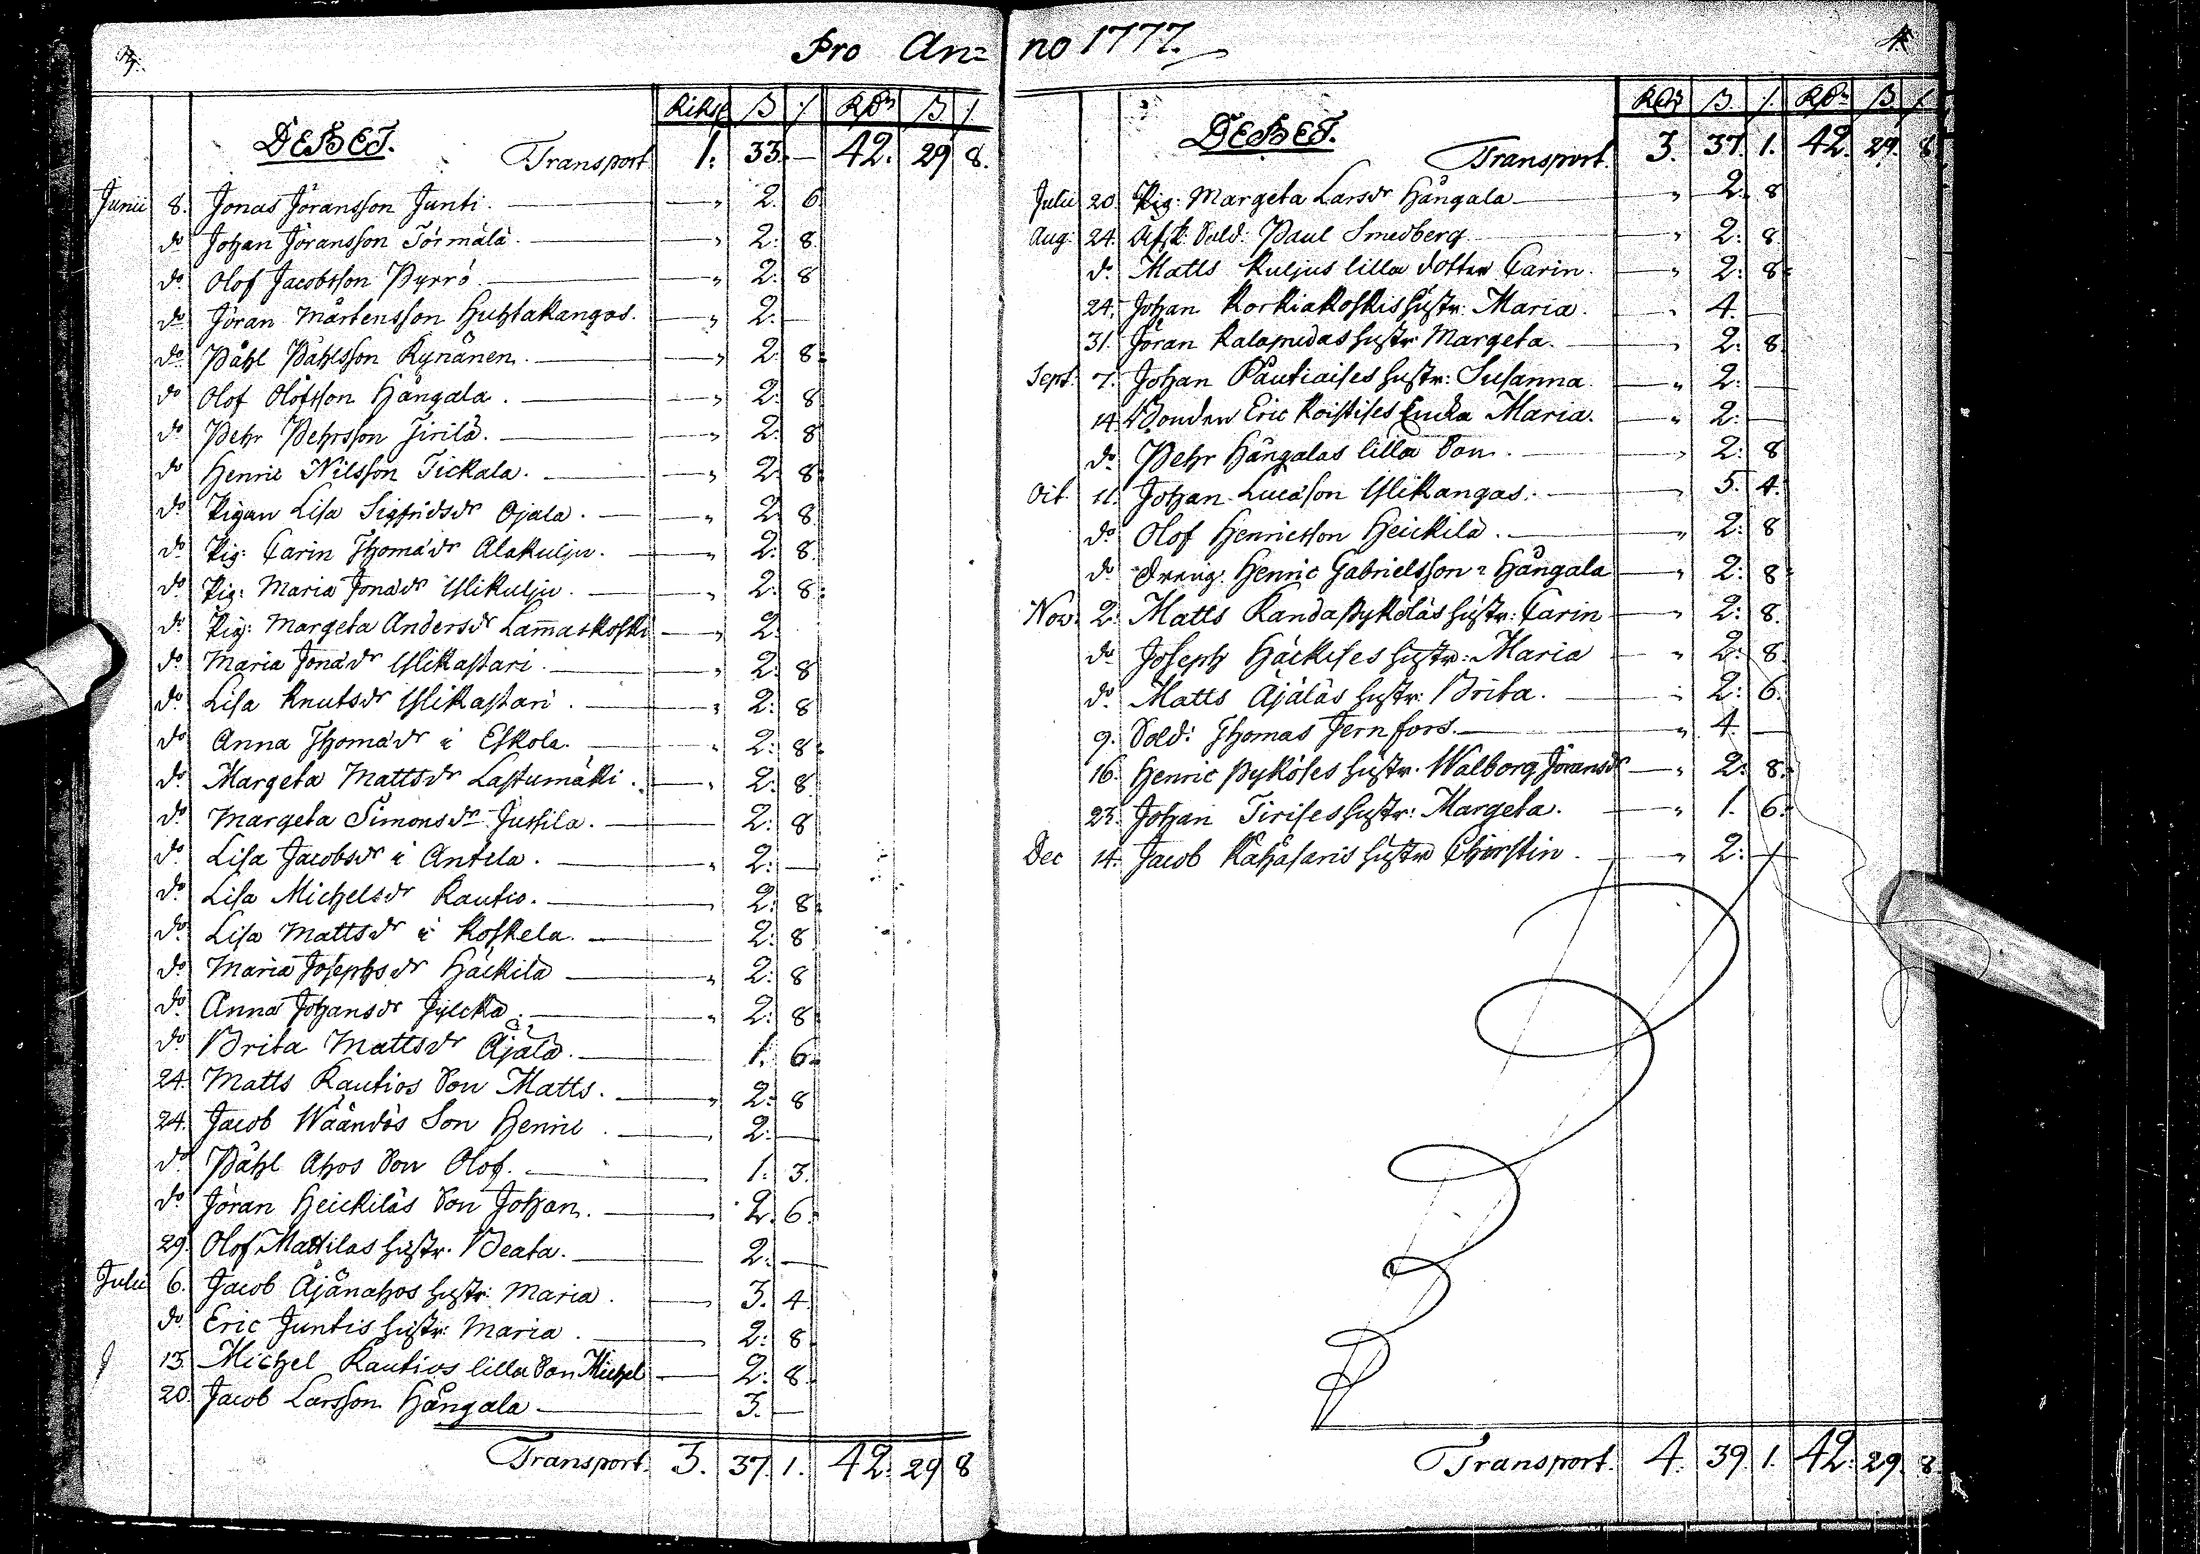 Pro An=
Riksd ß / RDr ß /
DEBET. Transport 1. 33. — 42. 29 8.
Junii 8. Jonas Jöransson Junti. — " 2. 6
do Johan Jöransson Törmälä. — " 2: 8.
do Olof Jacobsson Pyrrö — " 2: 8
do Jöran Mårtensson Huhtakangas. — " 2. —
do Påhl Påhlsson Kynänen. — " 2. 8.
do Olof Olofsson Hångala. — " 2: 8
do Pehr Pehrsson Jirilä. — " 2. 8
do Henric Nilsson Tickala. — " 2 8.
do Pigan Lisa Sigfridsdr Ojala. — " 2. 8
do Pig: Carin Thomadr Alakulju. — " 2. 8.
do Pig: Maria Jonadr Ylikulju. — " 2: 8.
do Pig: Margeta Andersdr Lam̄askoski — " 2.
do Maria Jonadr Ylikastari. — " 2. 8
do Lisa Knutsdr Ylikastari. — " 2: 8
do Anna Thomadr i Eskola. — " 2: 8.
do Margeta Mattsdr Lastumäki. — " 2: 8
do Margeta Simonsdr Jussila. — 2: 8
do Lisa Jacobsdr i Antila. — " 2: —
do Lisa Michelsdr Rautio. — " 2: 8.
do Lisa Mattsdr i Koskela. — 2: 8
do Maria Josephsdr Häckilä — " 2: 8
do Anna Johansdr Jylckä. — " 2: 8.
do Brita Mattsdr Äjälä. — 1. 6.
24. Matts Rautios Son Matts. — " 2: 8
24. Jacob Wäändös Son Henric. — 2: —
do Påhl Ahos Son Olof. — 1. 3.
do Jöran Heickiläs Son Johan. — 2. 6.
29. Olof Mattilas hustr. Beata. — 2. —
Julii 6. Jacob Äjänahos hustr: Maria. — 3. 4.
do Eric Juntis hustr: Maria. — 2: 8.
13. Michel Rautios lilla Son Michel — 2: 8.
20. Jacob Larsson Hångala — 3. —
Transport. 3. 37. 1. 42. 29 8
no 1777.
RDr ß / RDr ß /
DEBET. Transport. 3. 37. 1. 42. 29. 8
Julii 20 Pig: Margeta Larsdr Hångala — " 2. 8
Aug: 24. Afsk: Sold: Paul Smedberg — " 2: 8.
do Matts Kuljus lilla dotter Carin. — " 2: 8.
24. Johan Korkiakoskis hustr: Maria. — " 4. —
31. Jöran Kalapudas hustr Margeta. — " 2: 8.
Sept: 7. Johan Pautiaises hustr: Susanna. — " 2: —
14 Bonden Eric Koistises Encka Maria. — " 2: —
do Pehr Hångalas lilla Son. — " 2: 8
Oct 11. Johan Lucasson Ylikangas. — " 5. 4.
do Olof Henricsson Heickilä. — " 2: 8
do Dreng. Henric Gabrielsson i Hångala — " 2: 8
Nov. 2. Matts Kandapyköläs hustr: Carin — " 2: 8.
do Joseph Häckises hustr: Maria — " 2: 8.
do Matts Äjäläs hustr: Brita. — " 2: 6.
9. Sold: Thomas Jernfors. — " 4. —
16. Henric Pyköses hustr. Walborg Jöransdr — " 2: 8.
23. Johan Tirises hustr: Margeta. — " 1. 6.
Dec 14. Jacob Kähäsaris hustr Chirstin. — " 2: —
Transport. 4. 39. 1. 42. 29. 8